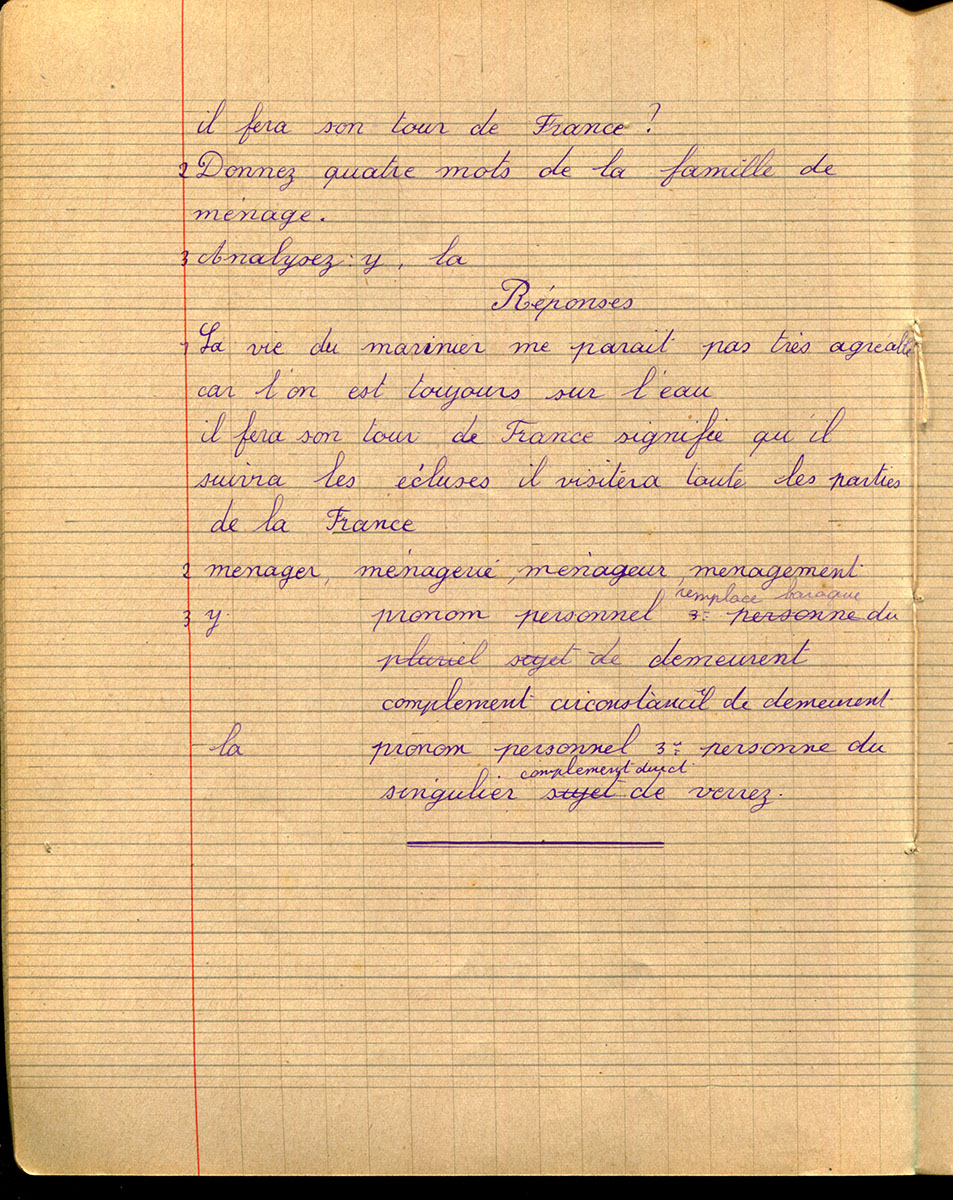 il fera son tour de France ?
2 Donnez quatre mots de la famille de
ménage.
3 Analysez : y, la
Réponses
1 La vie du marinier me parait pas très agréable
car l'on est toujours sur l'eau
il fera son tour de France signifie qu'il
suivra les écluses il visitera toute les parties
de la France
2 menager, ménagerie, ménageur, menagement
remplace baraque
3 y pronom personnel 3e personne du
pluriel sujet de demeurent
complement circonstancil de demeurent
la pronom personnel 3e personne du
complement direct
singulier sujet de verrez.